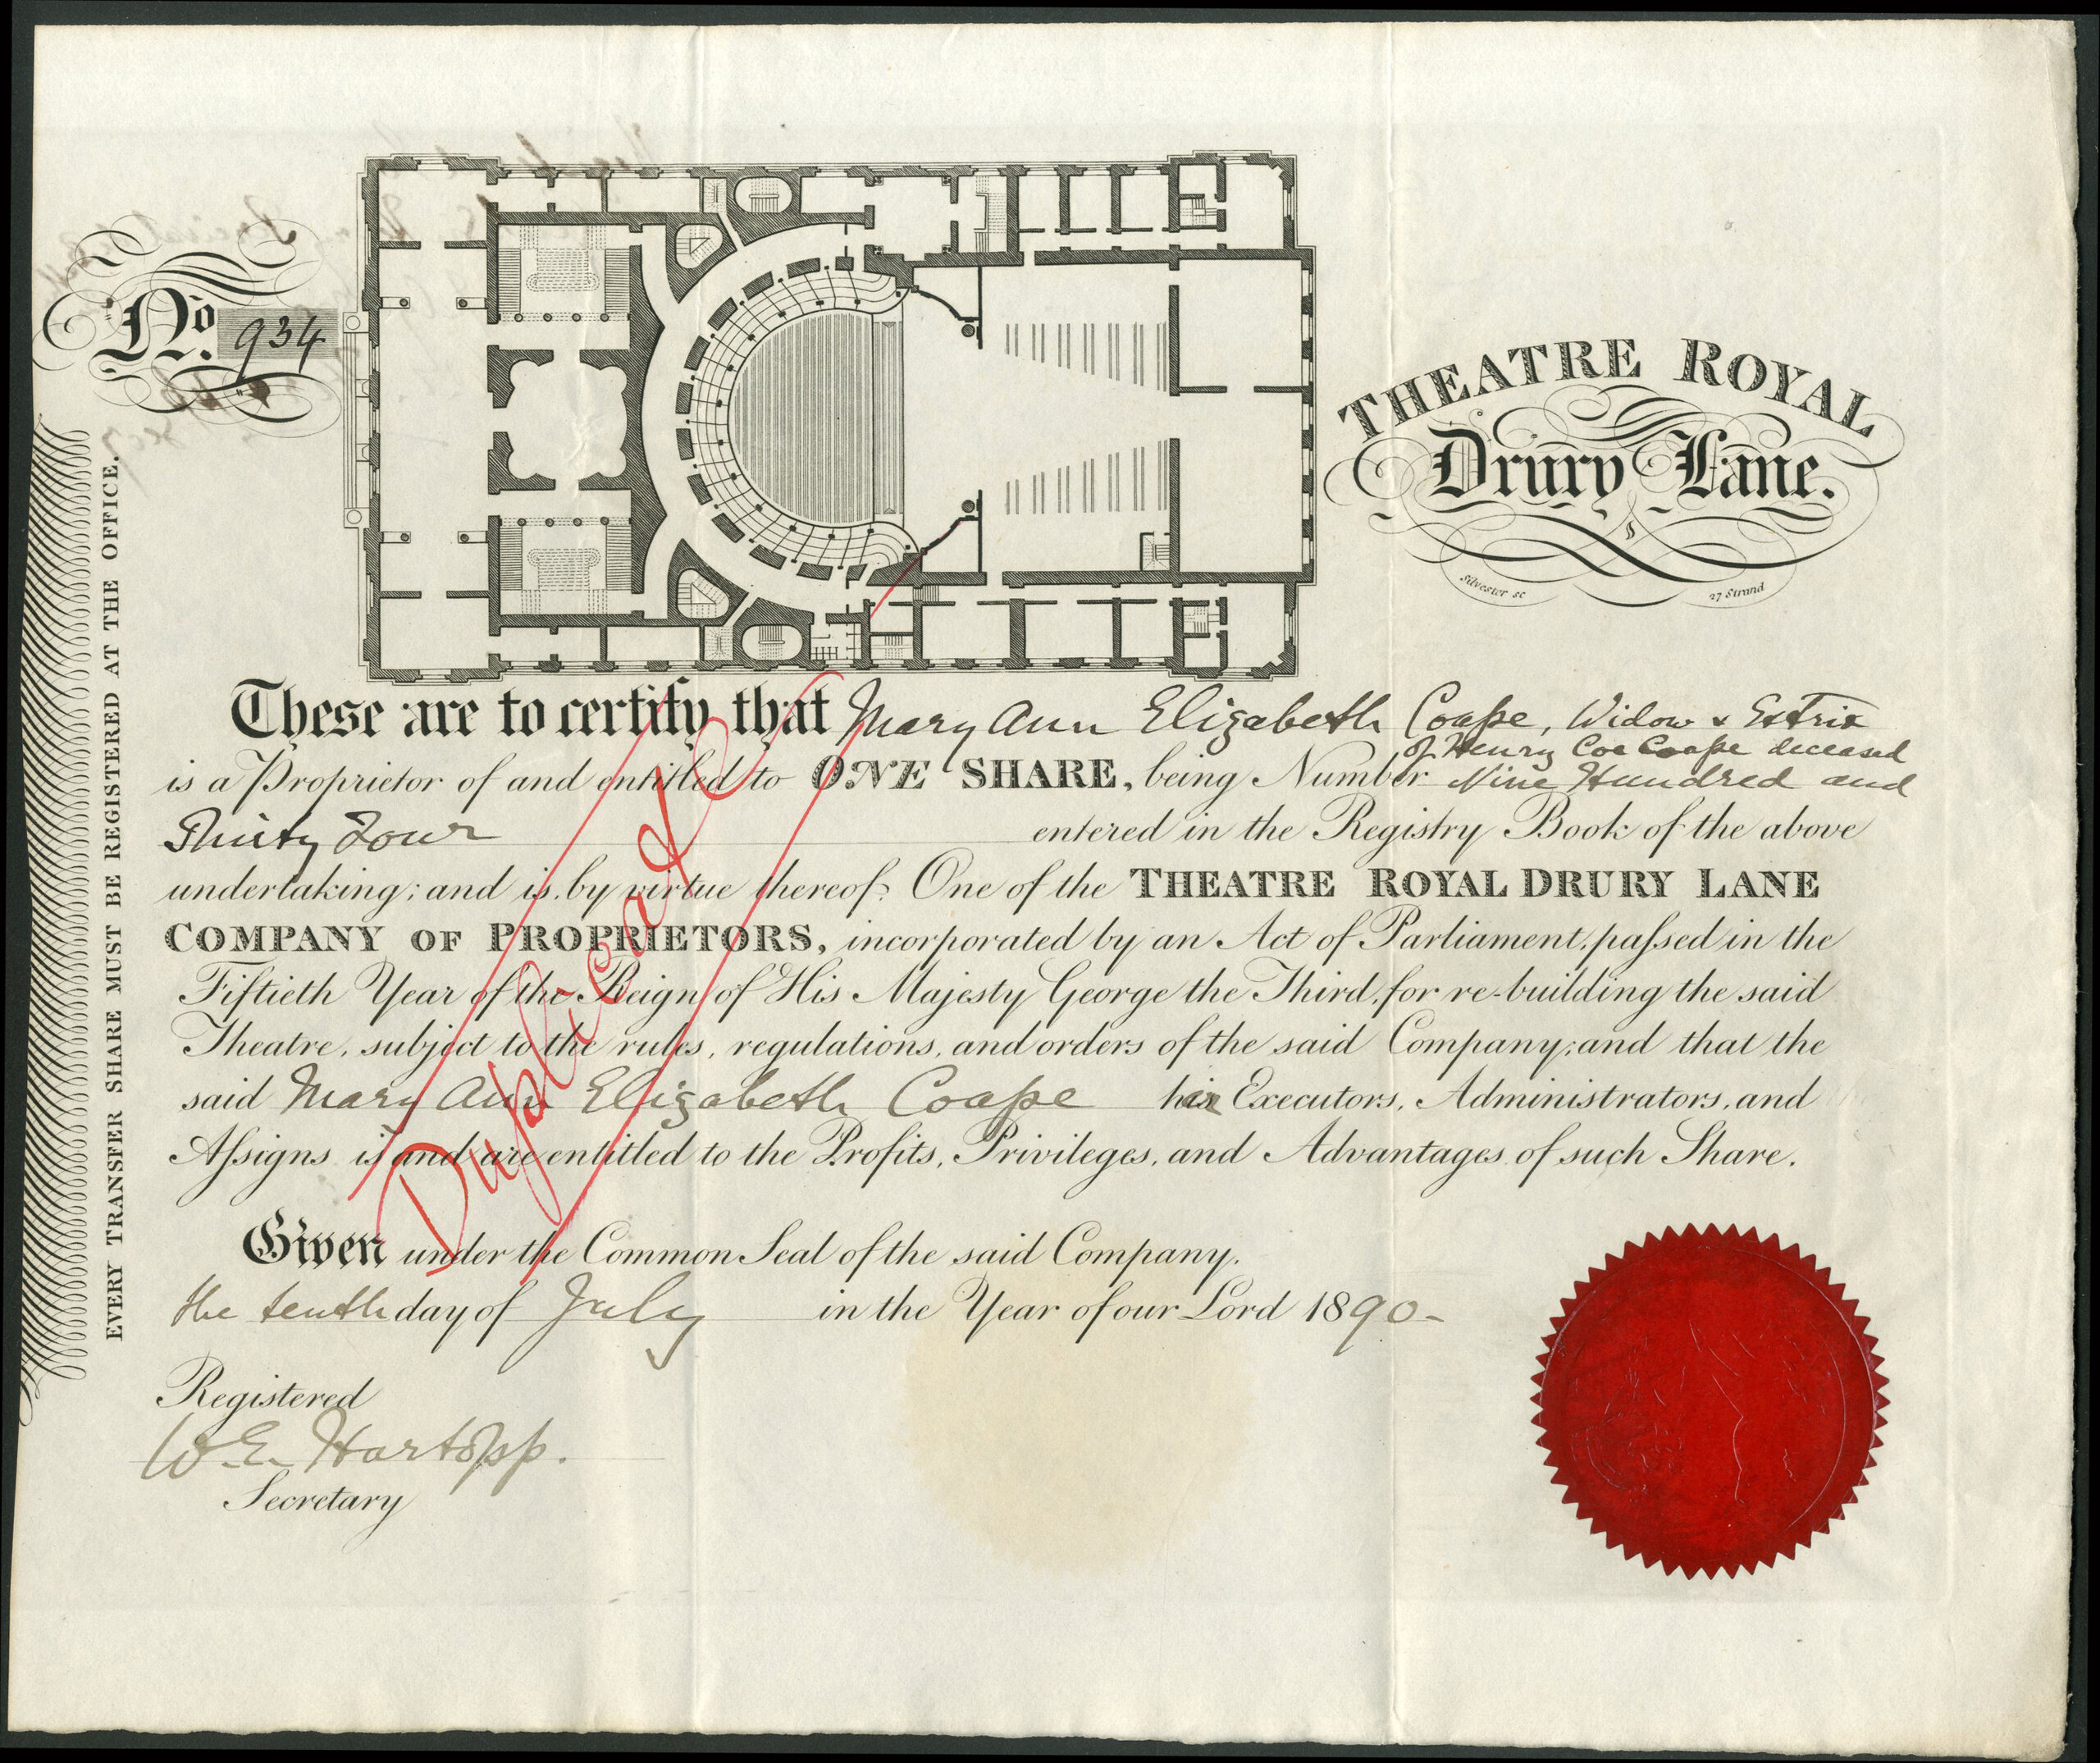 No. 934
THEATRE ROYAL
Drury Lane.
Silvester sc 27 Strand
EVERY TRANSFER SHARE MUST BE REGISTERED AT THE OFFICE.
These are to certify that Mary Ann Elizabeth Coape, Widow & Extrix
of Henry Coe Coape deceased
is a Proprietor of and entitled to ONE SHARE, being Number Nine Hundred and
Thirty Four entered in the Registry Book of the above
undertaking; and is, by virtue thereof, One of the THEATRE ROYAL DRURY LANE
COMPANY OF PROPRIETORS, incorporated by an Act of Parliament, paſsed in the
Fiftieth Year of the Reign of His Majesty George the Third, for re-building the said
Theatre, subject to the rules, regulations, and orders of the said Company; and that the
said Mary Ann Elizabeth Coape her Executors, Administrators, and
Aſsigns is and are entitled to the Profits, Privileges, and Advantages of such Share.
Duplicate
Given under the Common Seal of the said Company,
the tenth day of July in the Year of our Lord 1890-
Registered
W. E. Hartopp.
Secretary